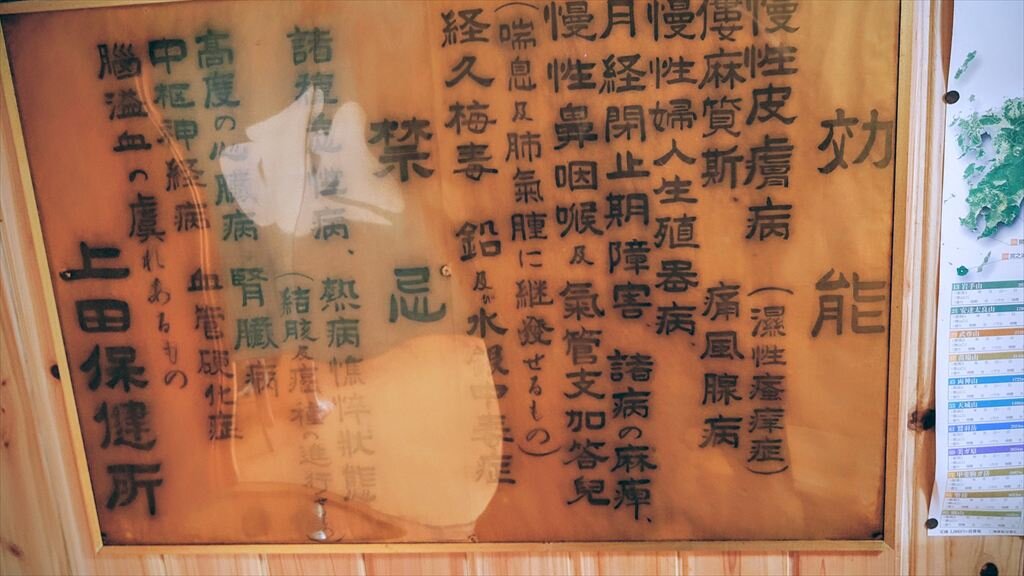 効能
慢性皮膚病(濕性痒痺症)
僂麻質斯、痛風腺病
慢性婦人生殖器病、
月経閉止期障害 諸病の麻痺、
慢性鼻咽喉及氣管支加答兒
(喘息及肺氣腫に継発せるもの)
経久梅毒 鉛及ビ水銀中毒症
禁忌
諸種急性病、熱病憔悴状態
(結核及癌種の進行
高度の心臓病、腎臓病
中枢神経病 血管硬化症
腦溢血の虞れあるもの
上田保健所